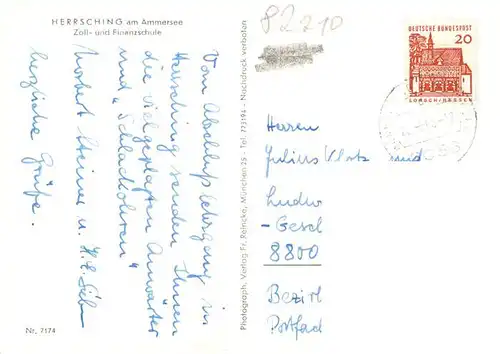 HERRSCHING am Ammersee
Zoll- und Finanzschule
Vom Abschlußlehrgang in
Herrsching senden Ihnen
die vielgeplagten Anwärter
und "Schlachtohren"
Norbert Steine u. H.
herzliche Grüße.
Nr. 7574
Photograph. Verlag Fr. Reincke, München 25 - Tel. 773194 - Nachdruck verboten
82210
DEUTSCHE BUNDESPOST
20
LORSCH/HESSEN
Herren
Julius Klotz und
Ludw
-Gesel
8800
Bezirl
Postfach